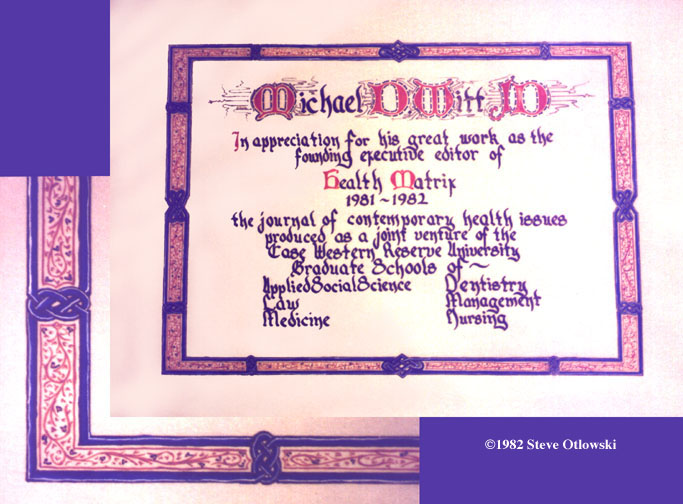 Michael D Witt JD
In appreciation for his great work as the
founding executive editor of
Health Matrix
1981~1982
the journal of contemporary health issues
produced as a joint venture of the
Case Western Reserve University
Graduate Schools of ~
Applied Social Science Dentistry
Law Management
Medicine Nursing
©1982 Steve Otlowski